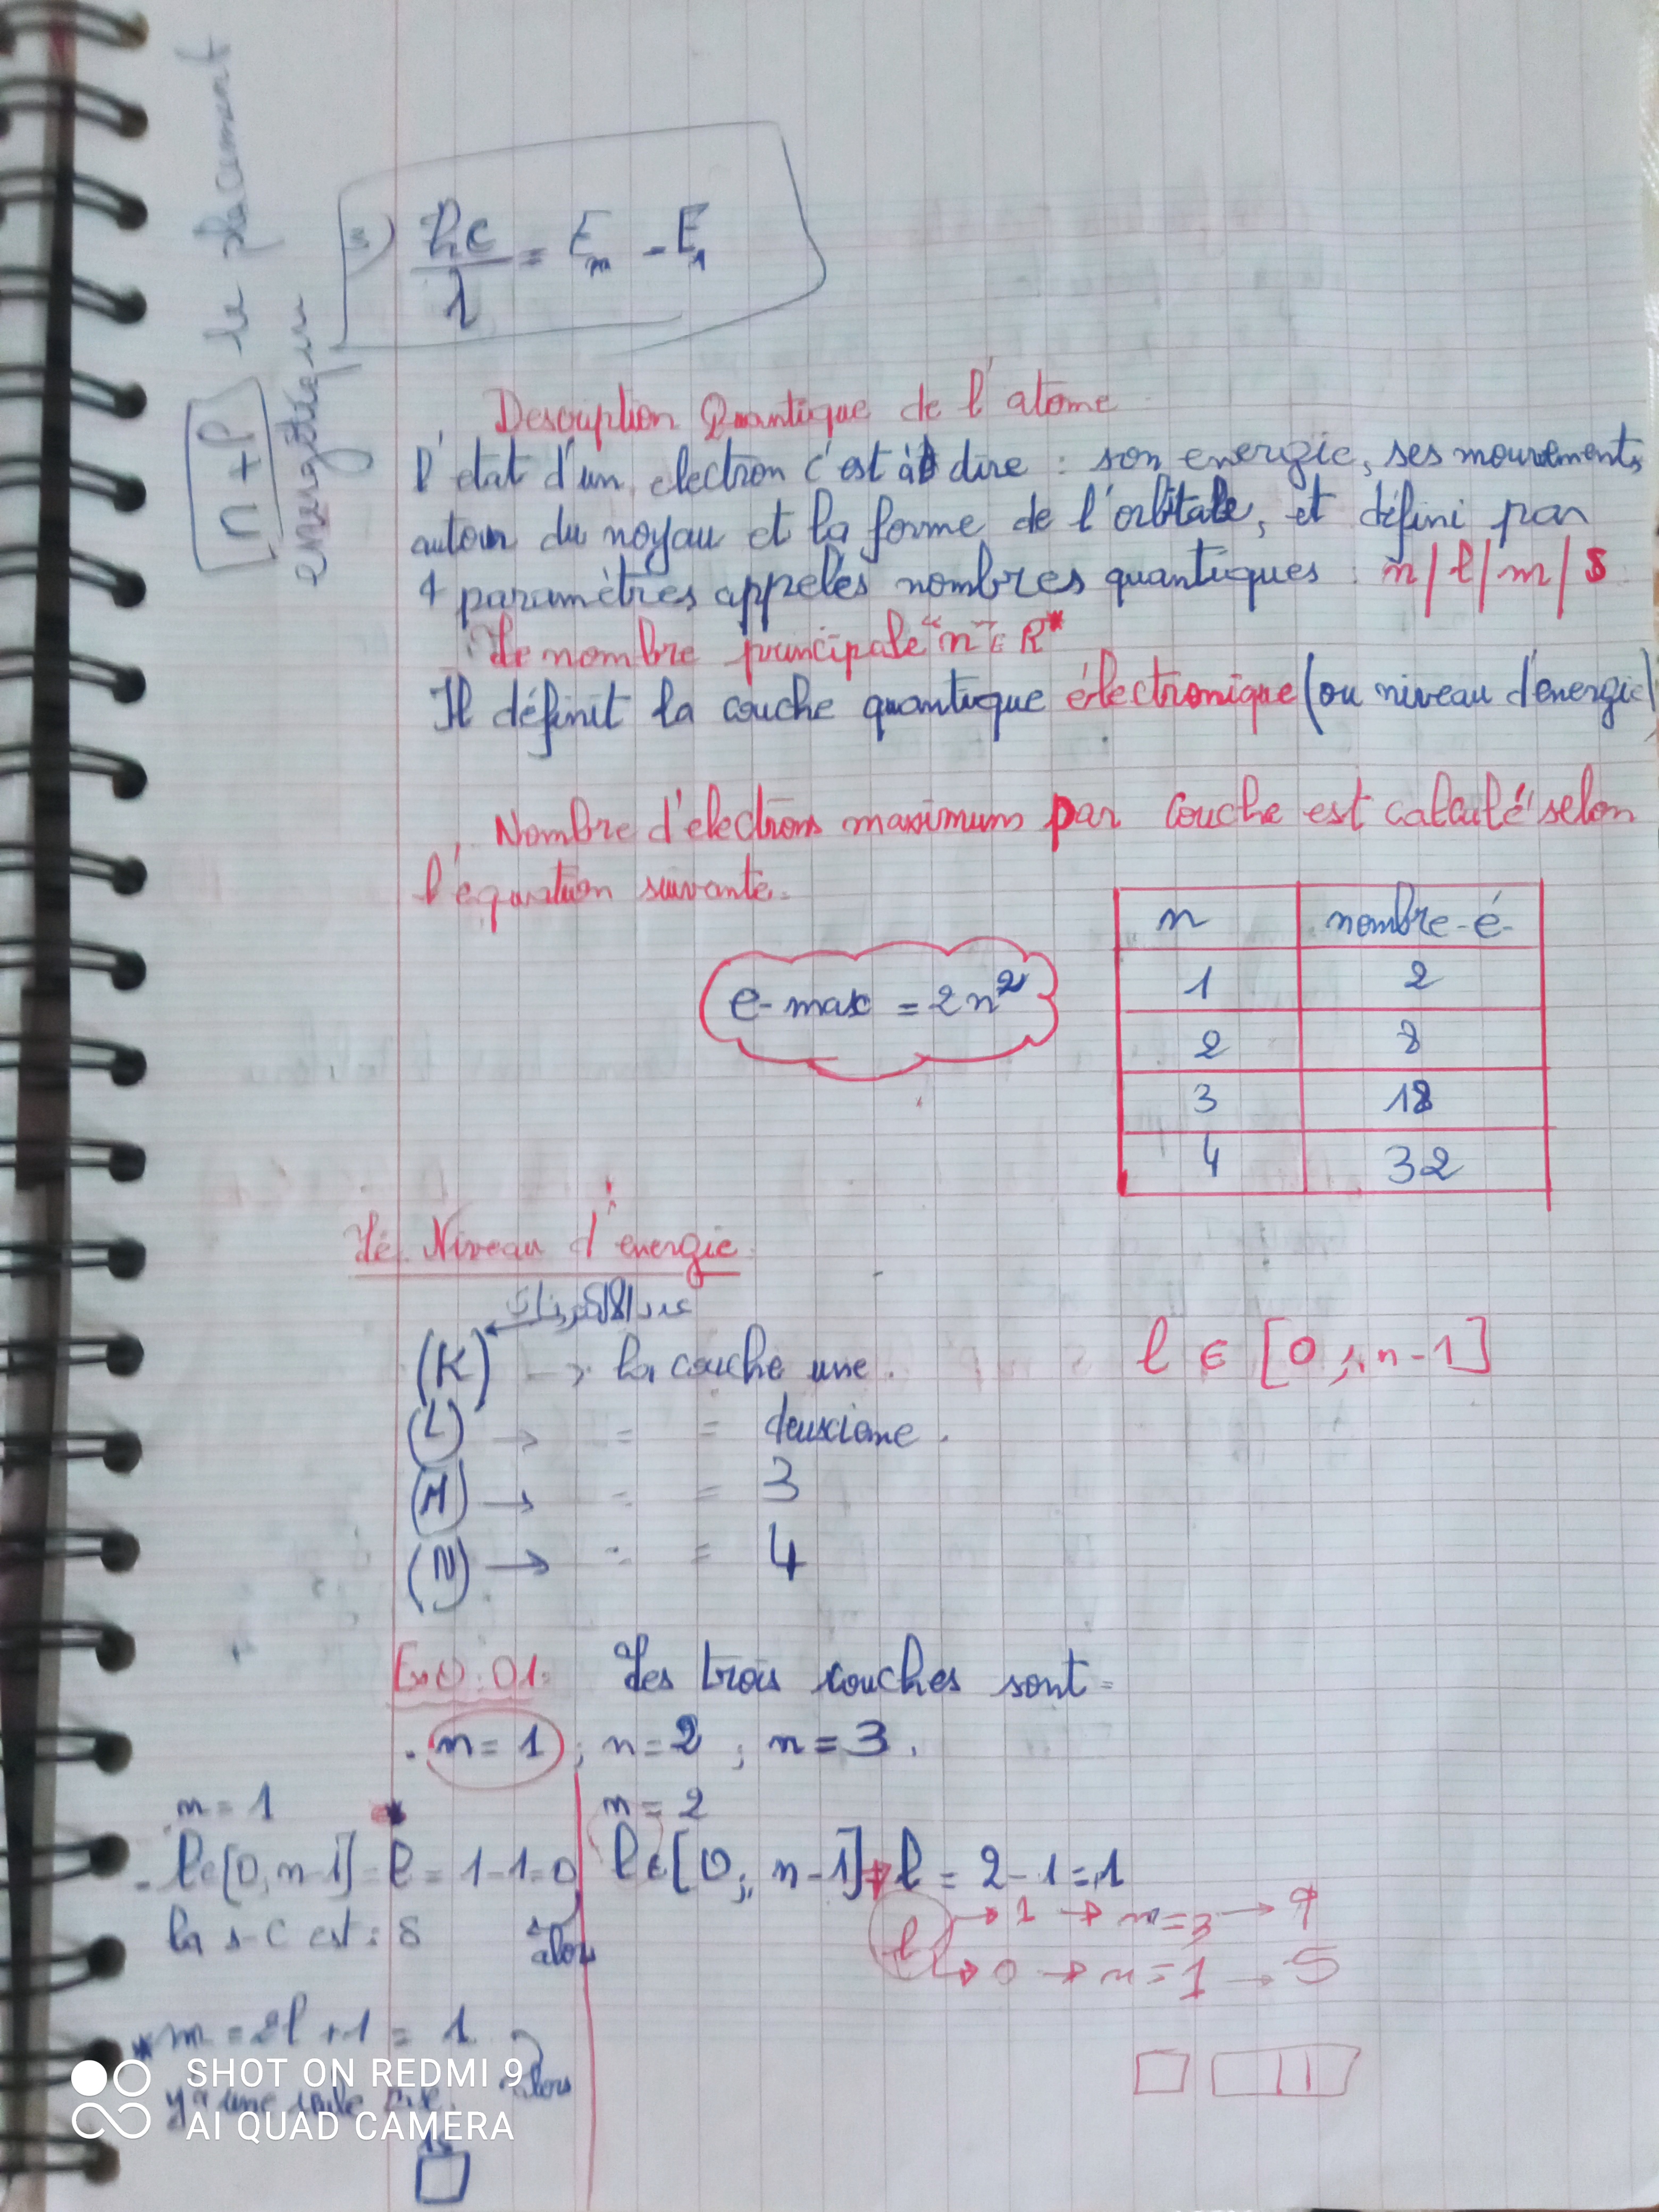 n + l le placement
energétique
hc/λ = Em - E1
Description Quantique de l'atome
l'etat d'un electron c'est à dire : son energie, ses mouvements
autour du noyau et la forme de l'orbitale, et défini par
4 paramètres appelés nombres quantiques : n / l / m / s
Le nombre principale "n" ∈ R*
Il définit la couche quantique électronique (ou niveau d'énergie)
Nombre d'electrons maximum par couche est calculé selon
l'équation suivante.
e- max = 2n²
n nombre-é-
1 2
2 8
3 18
4 32
Le Niveau d'energie
عدد الالكترونات
(K) → la couche une.
(L) → = = deuxieme.
(M) → = = 3
(N) → = = 4
l ∈ [0 ,, n-1]
Exo: 01: Les trois couches sont =
. n = 1 ; n = 2 ; n = 3 .
n = 1
- l∈[0, n-1] - l = 1-1=0
la s-c est : s
alors
* m = 2l + 1 = 1
y'a une seule
alors
n = 2
l ∈ [0,, n-1] → l = 2-1=1
l → 1 → m=3 → P
→ 0 → m=1 → S
SHOT ON REDMI 9
AI QUAD CAMERA